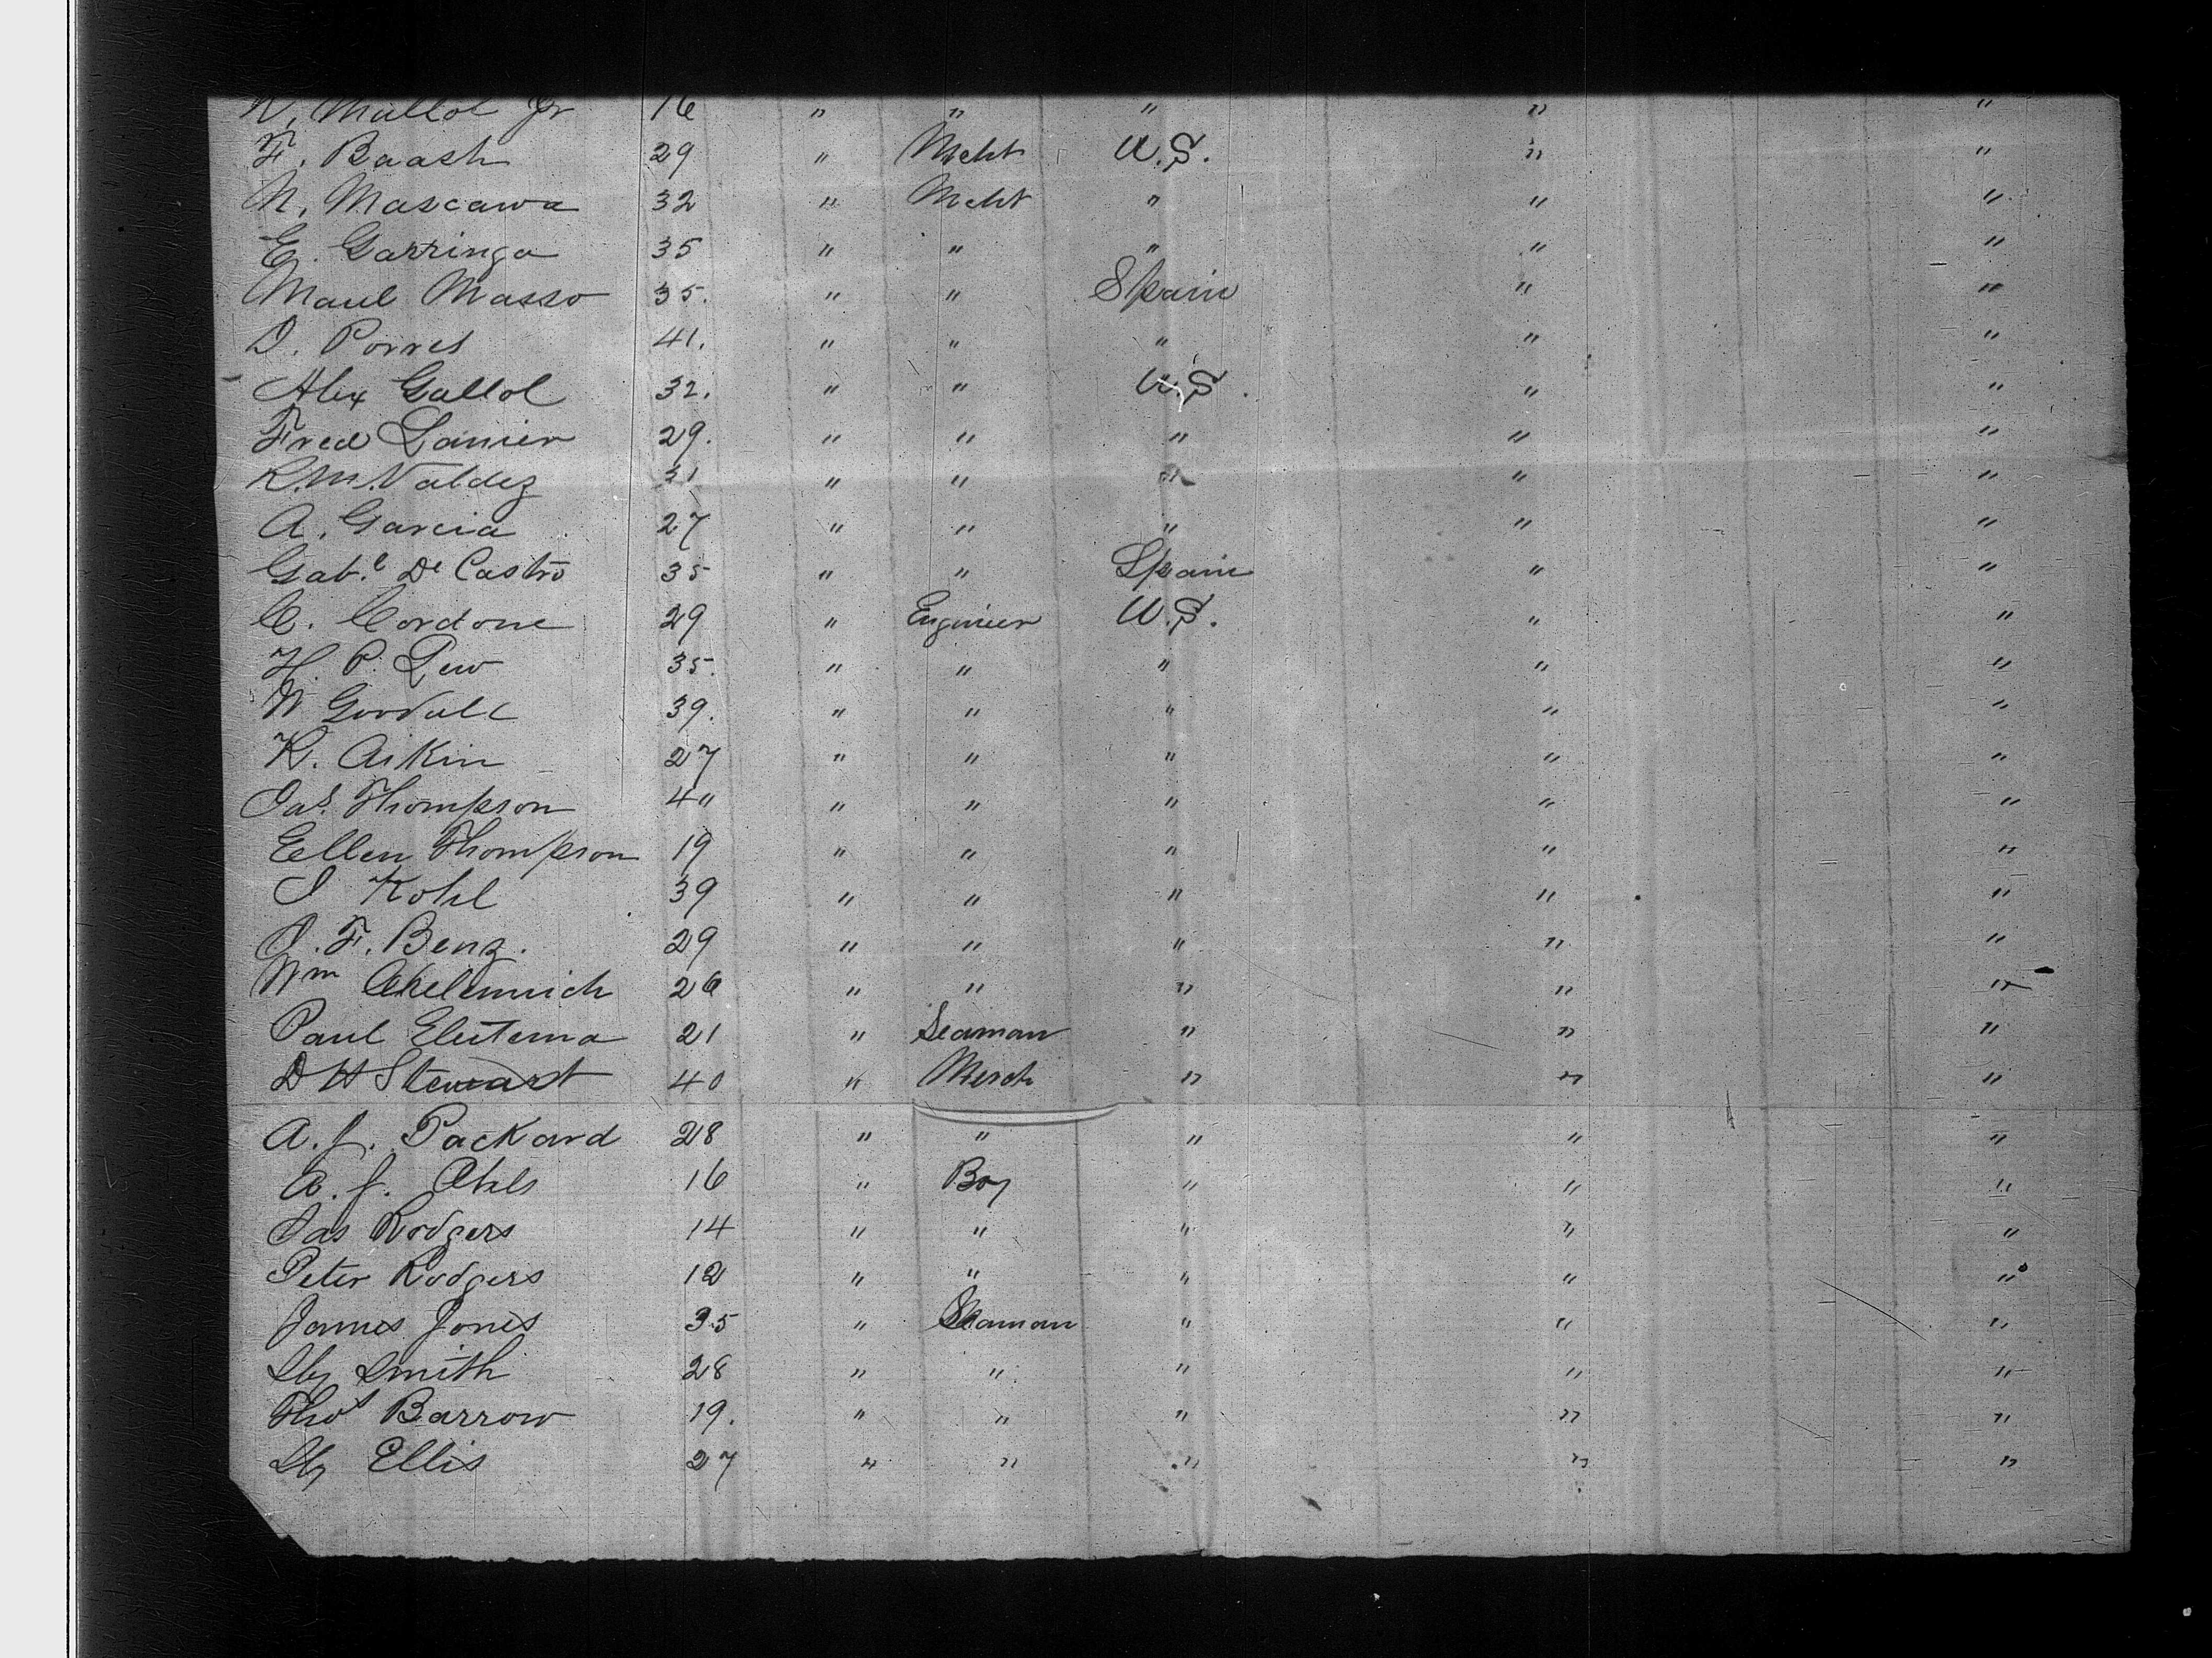 N. Mallol Jr 16 " " " " "
F. Baash 29 " Mcht U.S. " "
N. Mascawa 32 " Mcht " " "
E. Garringa 35 " " " " "
Maul Masso 35. " " Spain " "
D. Porres 41. " " " " "
Alex Gallol 32. " " U.S. " "
Fred Lanier 29. " " " " "
R.M. Valdez 31 " " " " "
A. Garcia 27 " " " " "
Gab.l De Castro 35 " " Spain " "
C. Cordone 29 " Engineer U.S. " "
H. P. Lew 35. " " " " "
W Goodall 39. " " " " "
R. Aikin 27 " " " " "
Jas. Thompson 40 " " " " "
Eellen Thompson 19 " " " " "
J Kohl 39 " " " " "
J. F. Benz. 29 " " " " "
Wm 26 " " " " "
Paul Elutema 21 " Seaman " " "
D H Stewart 40 " Merch " " "
A. J. Packard 28 " " " " "
A. J. Ahls 16 " Boy " " "
Jas Rodgers 14 " " " " "
Peter Rodgers 12 " " " " "
James Jones 35 " Seaman " " "
Smith 28 " " " " "
Thos Barrow 19. " " " " "
Ellis 27 " " " " "